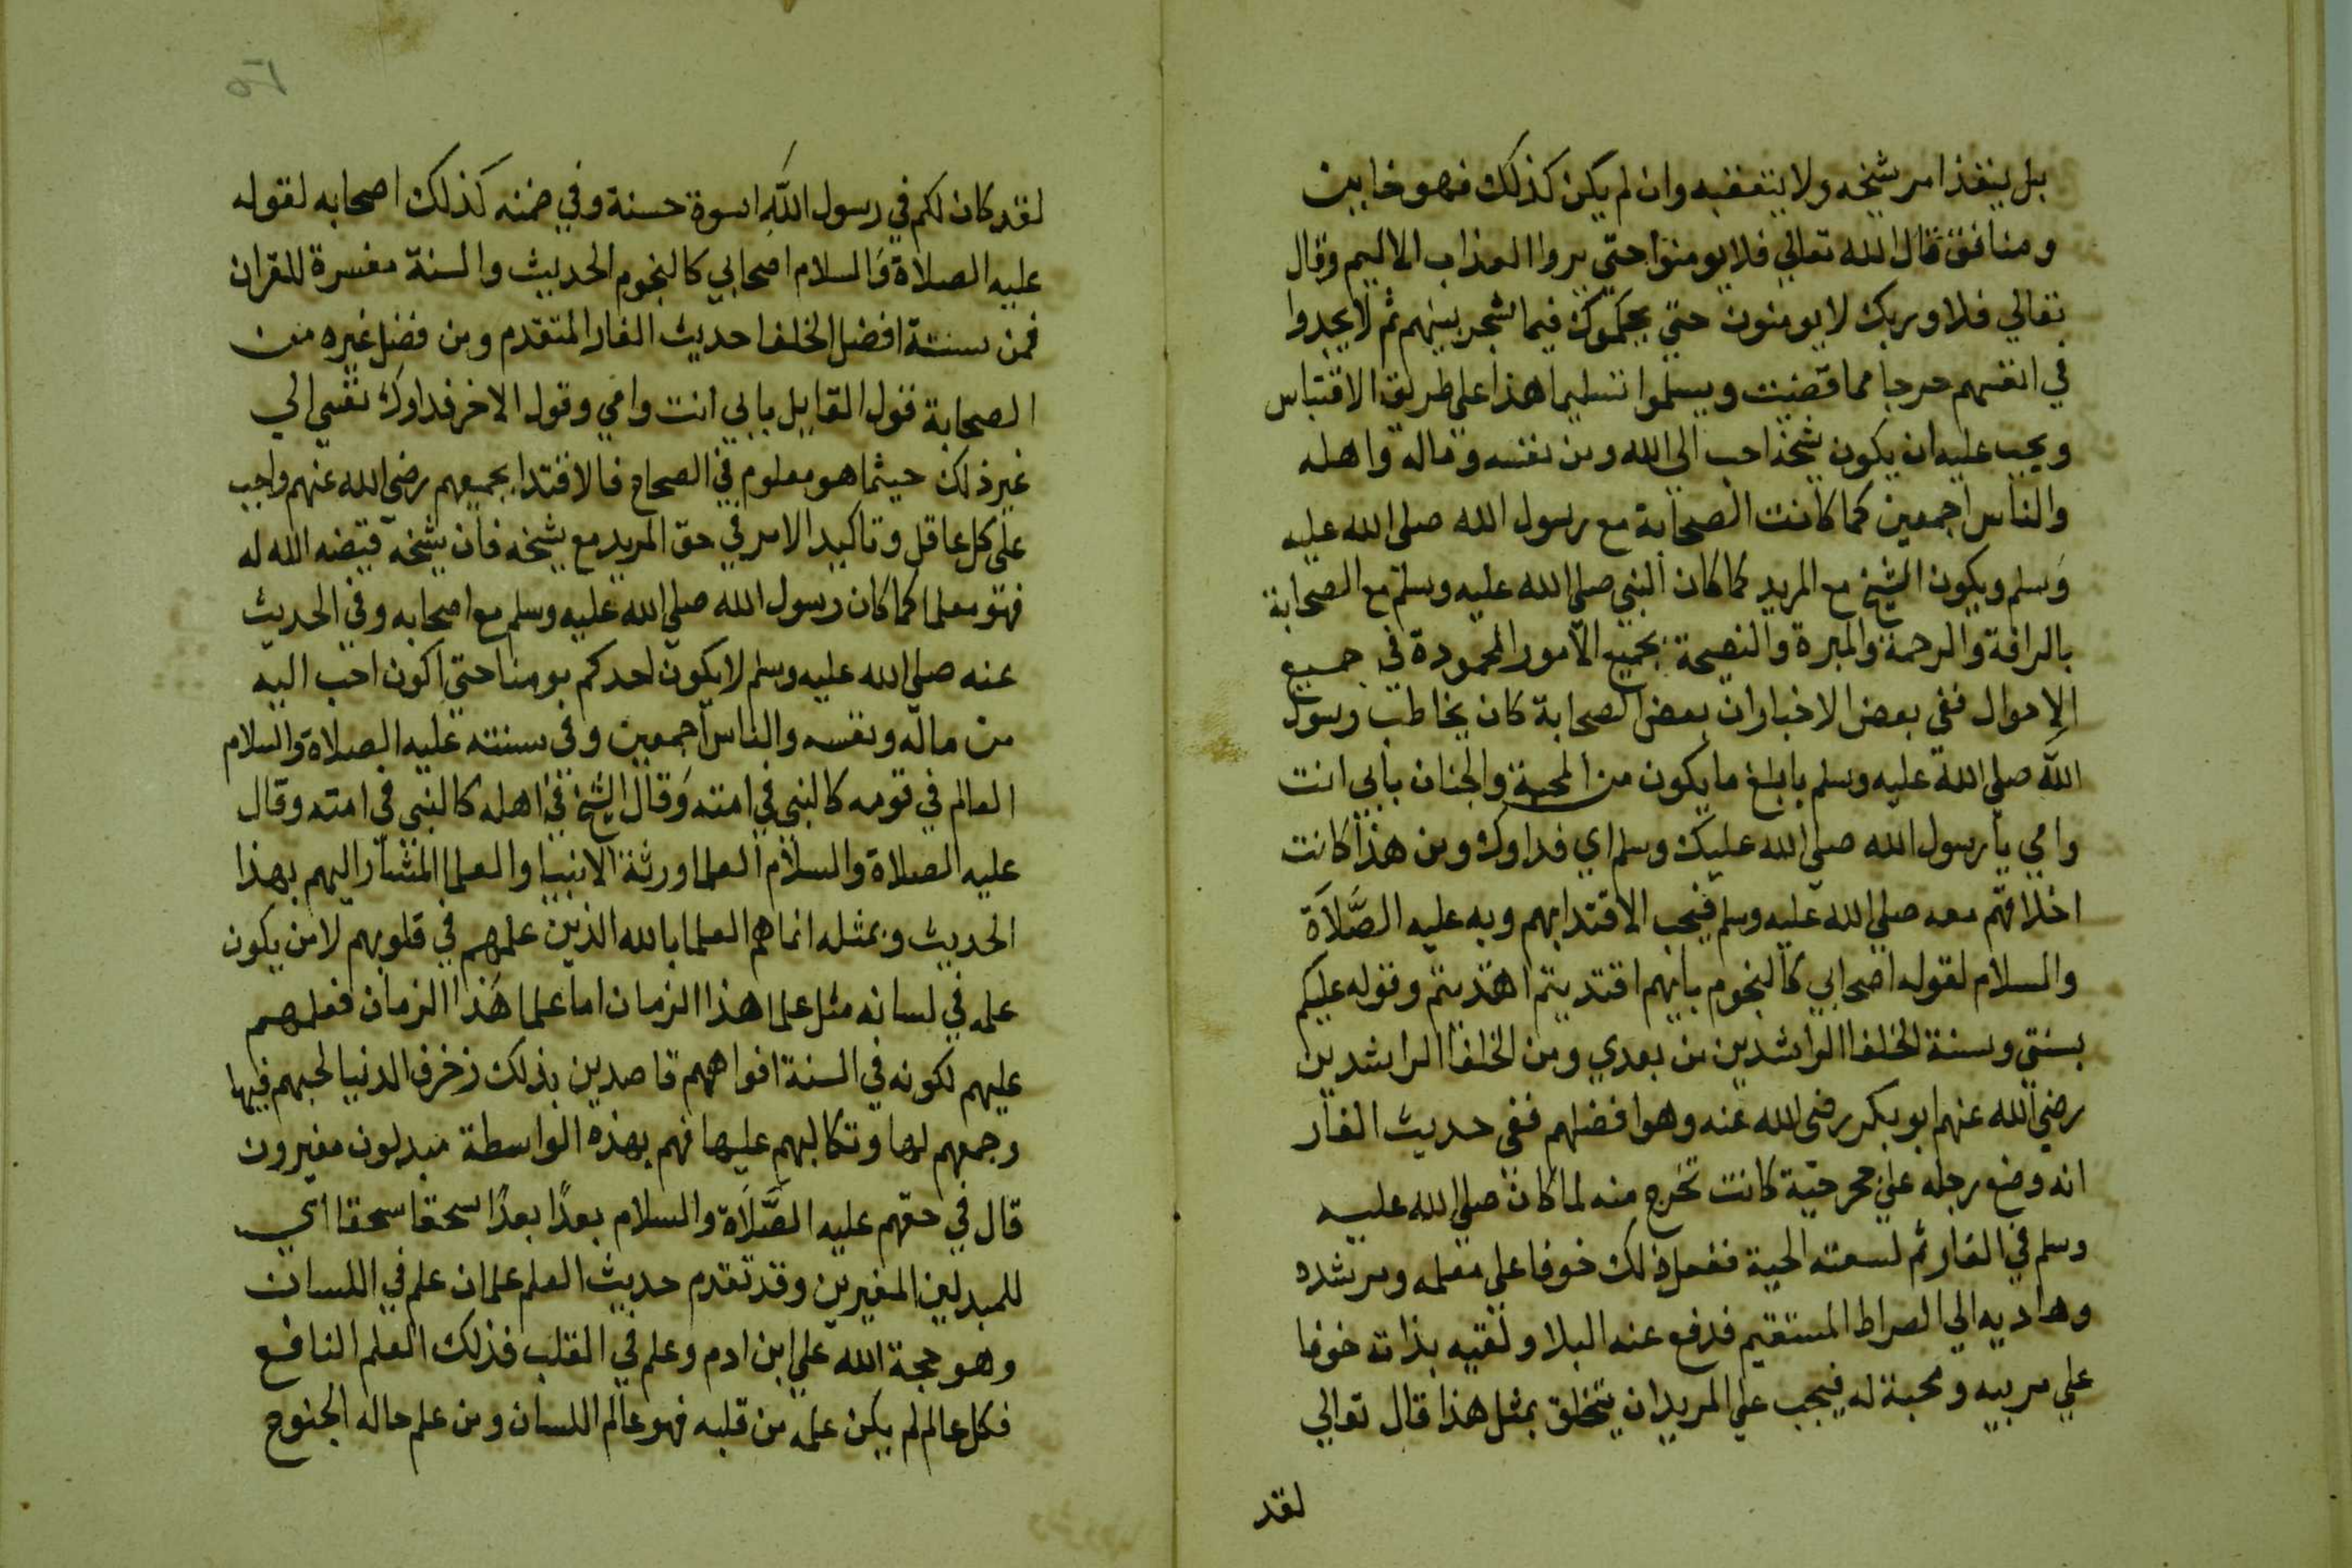 بل ينفذ امر شيخه ولا يتعقبه وان لم يكن كذلك فهو خاين
ومنافق قال الله تعالي فلا يومنوا حتي يروا العذاب الاليم وقال
تعالي فلا وربك لا يومنون حتي يحكموك فيما شجر بينهم ثم لا يجدوا
في انفسهم حرجا مما قضيت ويسلموا تسليما هذا علي طريق الاقتباس
ويجب عليه ان يكون شيخه احب الي الله ومن نفسه وماله واهله
والناس اجمعين كما كانت الصحابة مع رسول الله صلي الله عليه
وسلم ويكون الشيخ مع المريد كما كان النبي صلي الله عليه وسلم مع الصحابة
بالرافة والرحمة والمبرة والنصيحة بجميع الامور المحمودة في جميع
الاحوال ففي بعض الاخبار ان بعض الصحابة كان يخاطب رسول
الله صلي الله عليه وسلم بابلغ ما يكون من المحبة والجنان بابي انت
وامي يا رسول الله صلي الله عليك وسلم اي فداوك ومن هذا كانت
اخلاقهم معه صلي الله عليه وسلم فيجب الاقتدا بهم وبه عليه الصَّلاَة
والسلام لقوله اصحابي كالنجوم بايهم اقتديتم اهتديتم وقوله عليكم
بسنتي وسنة الخلفا الراشدين من بعدي ومن الخلفا الراشدين
رضي الله عنهم ابو بكر رضي الله عنه وهو افضلهم ففي حديث الغار
انه وضع رجله علي جحر حية كانت تخرج منه لما كان صلي الله عليه
وسلم في الغار ثم لسعته الحية ففعل ذلك خوفا علي معلمه ومرشده
وهاديه الي الصراط المستقيم فدفع عنه البلا ولقيه بذاته خوفا
علي مربيه ومحبة له فيجب علي المريد ان يتخلق بمثل هذا قال تعالي
لقد
لقد كان لكم في رسول الله اسوة حسنة وفي ضمنه كذلك اصحابه لقوله
عليه الصلاة والسلام اصحابي كالنجوم الحديث والسنة مفسرة للقران
فمن سنة افضل الخلفا حديث الغار المتقدم ومن فضل غيره من
الصحابة قول القايل بابي انت وامي وقول الاخر فداوك نفسي الي
غير ذلك حيثما هو معلوم في الصحاح فالاقتدا بجميعهم رضي الله عنهم واجب
علي كل عاقل وتاكيد الامر في حق المريد مع شيخه فان شيخه قيضه الله له
فهو معلما كما كان رسول الله صلي الله عليه وسلم مع اصحابه وفي الحديث
عنه صلي الله عليه وسلم لا يكون احدكم مومنا حتي اكون احب اليه
من ماله ونفسه والناس اجمعين وفي سنته عليه الصلاة والسلام
العالم في قومه كالنبي في امته وقال الشيخ في اهله كالنبي في امته وقال
عليه الصلاة والسلام العلما ورثة الانبيا والعلما المشار اليهم بهذا
الحديث وبمثله انما هم العلما بالله الذين علمهم في قلوبهم لا من يكون
علمه في لسانه مثل علما هذا الزمان اما علما هذا الزمان فعلمهم
عليهم لكونه في السنة افواههم قاصدين بذلك زخرف الدنيا لحبهم فيها
وجمعهم لها وتكالبهم عليها فهم بهذه الواسطة مبدلون مغيرون
قال في حقهم عليه الصَّلاَة والسلام بعدًا بعدًا سحقا سحقا اي
للمبدلين المغيرين وقد تقدم حديث العلم علمان علم في اللسان
وهو حجة الله علي ابن ادم وعلم في القلب فذلك العلم النافع
فكل عالم لم يكن علمه من قلبه فهو عالم اللسان ومن علم حاله الجنوح